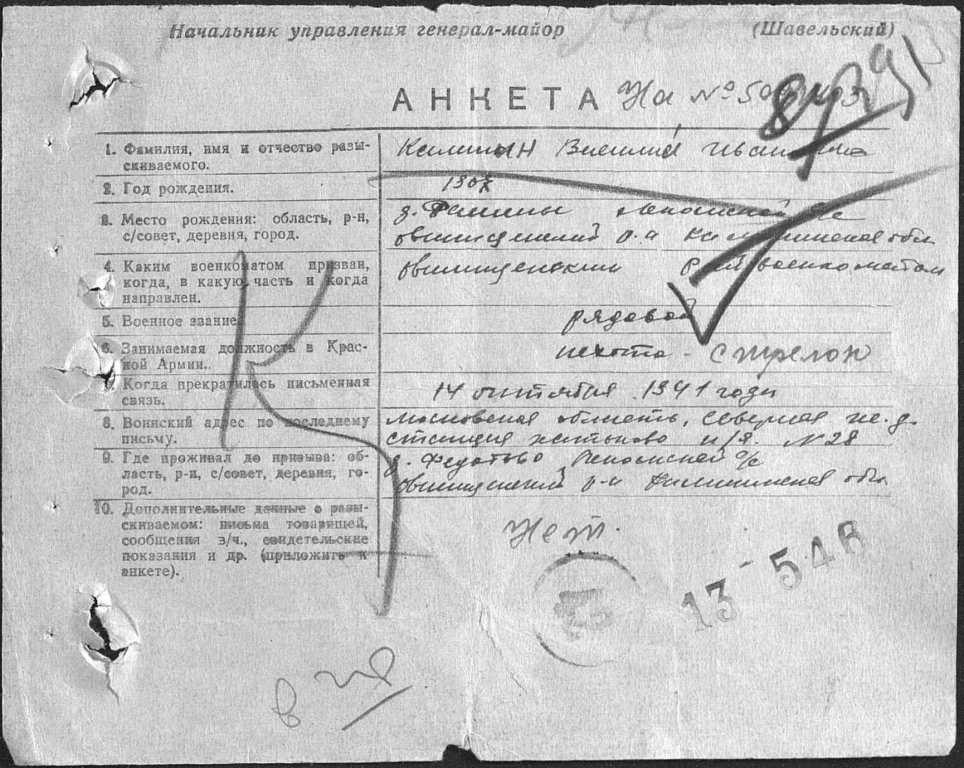 Начальник управления генерал-майор (Шавельский)
АНКЕТА На №
1. Фамилия, имя и отчество разыскиваемого. Калинин Василий Иванович
2. Год рождения.
3. Место рождения: область, р-н, с/совет, деревня, город. д. с/с
Овинищенский р-н Калининская обл
4. Каким военкоматом призван, когда, в какую часть и когда направлен. Овинищенским Райвоенкоматом
5. Военное звание рядовой
6. Занимаемая должность в Красной Армии. пехота - стрелок
7. Когда прекратилась письменная связь. 14 октября 1941 года
8. Воинский адрес по последнему письму. Московская область, Северная ж. д.
станция Хотьково п/я. №28
9. Где проживал до призыва: область, р-н, с/совет, деревня, город. д. Федотово с/с
Овинищенский р-н Калининская обл.
10. Дополнительные данные о разыскиваемом: письма товарищей, сообщения з/ч., свидетельские показания и др. (приложить к анкете). Нет.
К
13-546